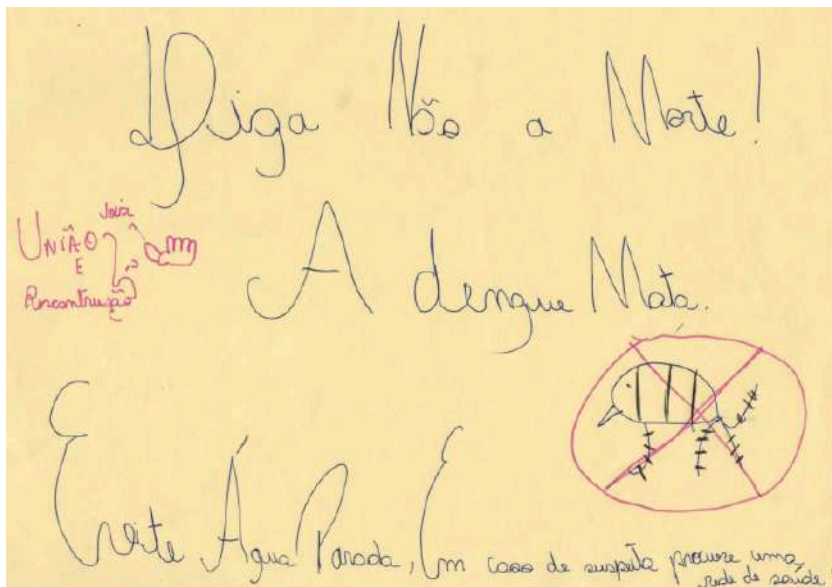 Diga Não a Morte!
UNIÃO
E
Joia
A dengue Mata.
Evite Água Parada, Em caso de suspeita procure uma
rede de saúde